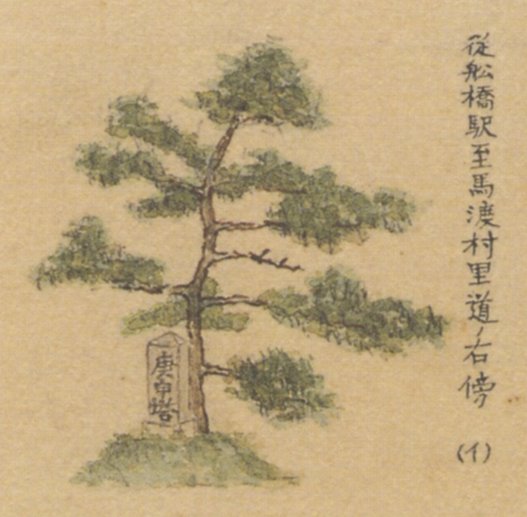 従舩橋駅至馬渡村里道ノ右傍
(イ)
庚申塔